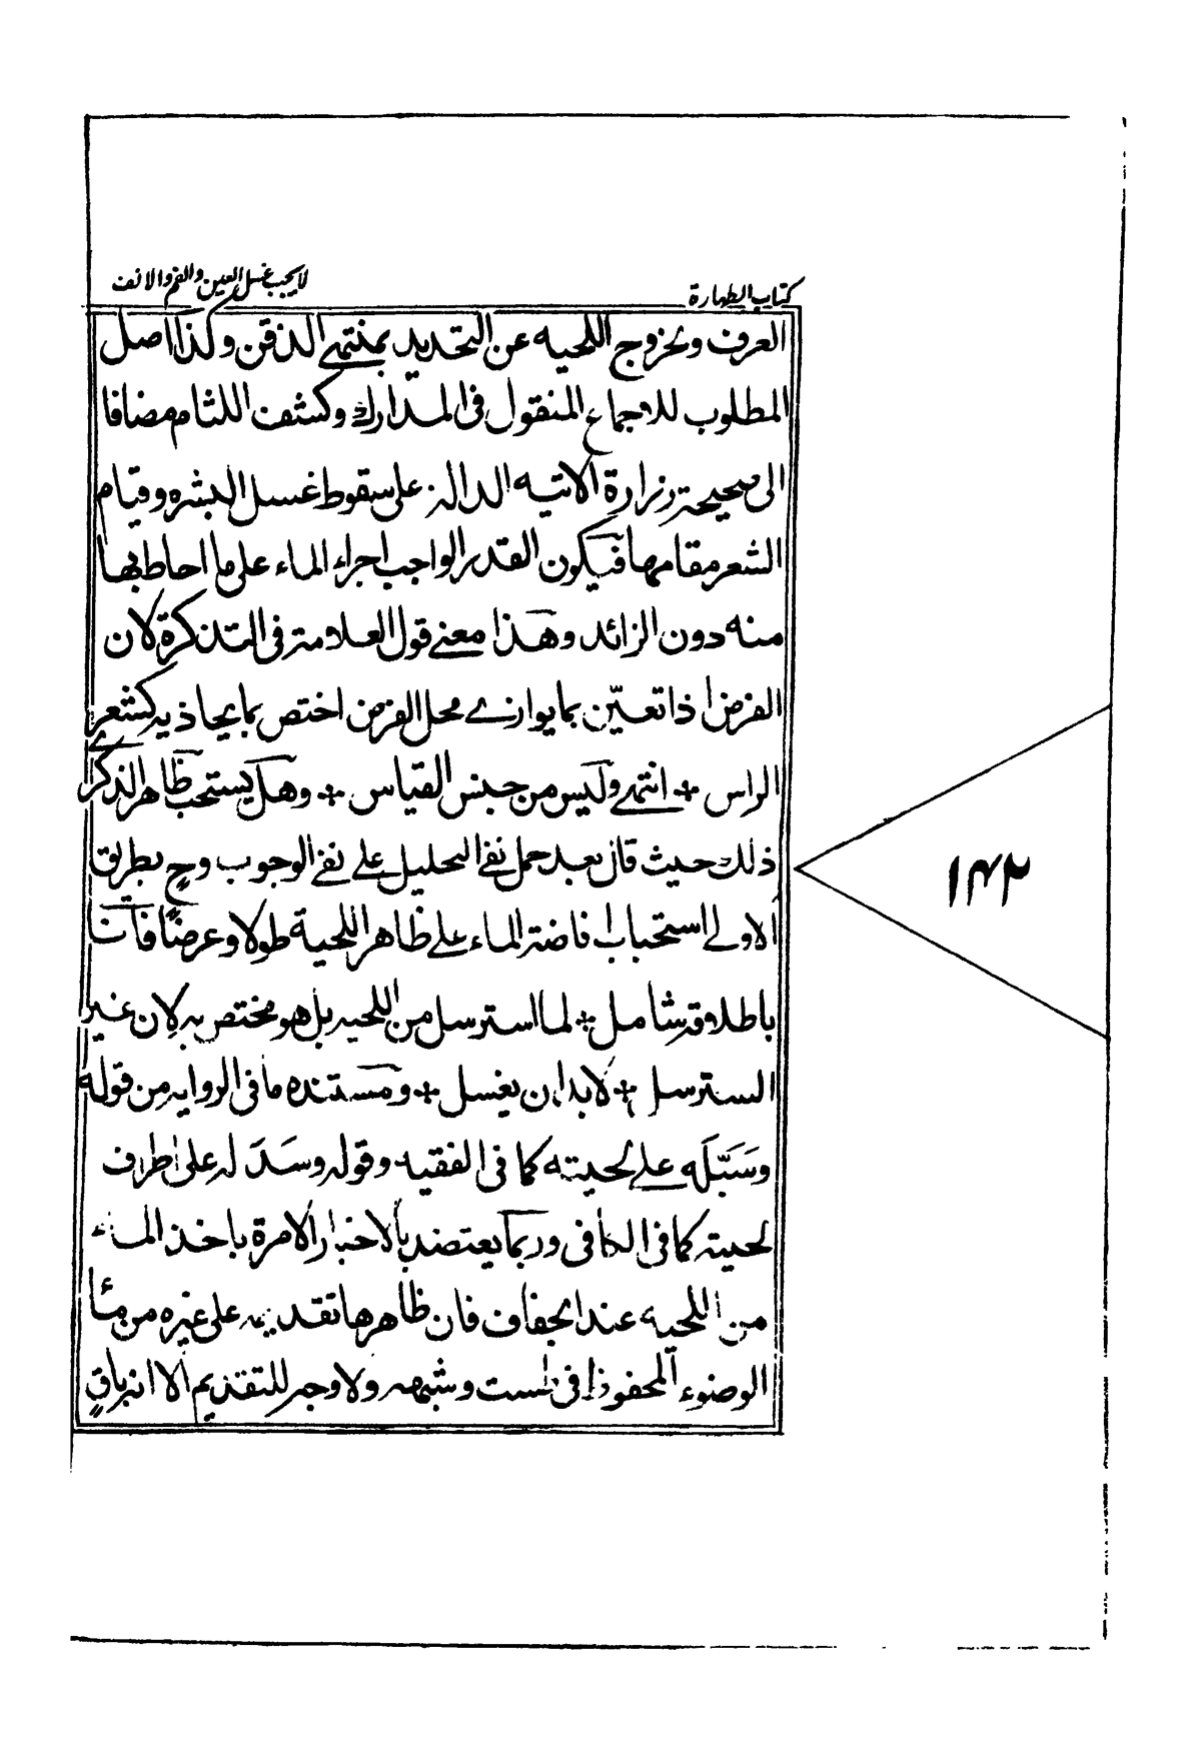 كتاب الطهارة
لا يجب غسل العين والفم والانف
العرف وخروج اللحيه عن التحديد بمنتهى الذقن وكذا اصل
المطلوب للاجماع المنقول فى المدارك وكشف اللثام مضافا
الى صحيحة زرارة الاتيه الدالة على سقوط غسل البشره وقيام
الشعر مقامها فيكون القدر الواجب اجراء الماء على ما احاط بها
منه دون الزائد وهذا معنى قول العلامة فى التذكرة لان
الفرض اذا تعيّن بما يوازے محل الفرض اختص بما يحاذيه كشعر
الراس + انتهى وليس من جنس القياس + وهل يستحب ظاهر الذكرے
ذلك حيث قال بعد حمل نفى التخليل على نفى الوجوب وح بطريق
الاولى استحباب افاضة الماء على ظاهر اللحية طولا وعرضًا فان
باطلاقه شامل + لما استرسل من اللحيه بل هو مختص به لان غير
المسترسل + لابد ان يغسل + ومستنده ما فى الروايه من قوله
وسَبَّلَه على لحيته كما فى الفقيه وقوله وسَدَلَه على اطراف
لحيته كما فى الكافى وربما يعتضد بالاخبار الامرة باخذ الماء
من اللحيه عند الجفاف فان ظاهرها تقديمه على غيره من مآء
الوضوء المحفوظ فى طست وشبهه ولا وجه للتقديم الا انه باقٍ
١٤٢